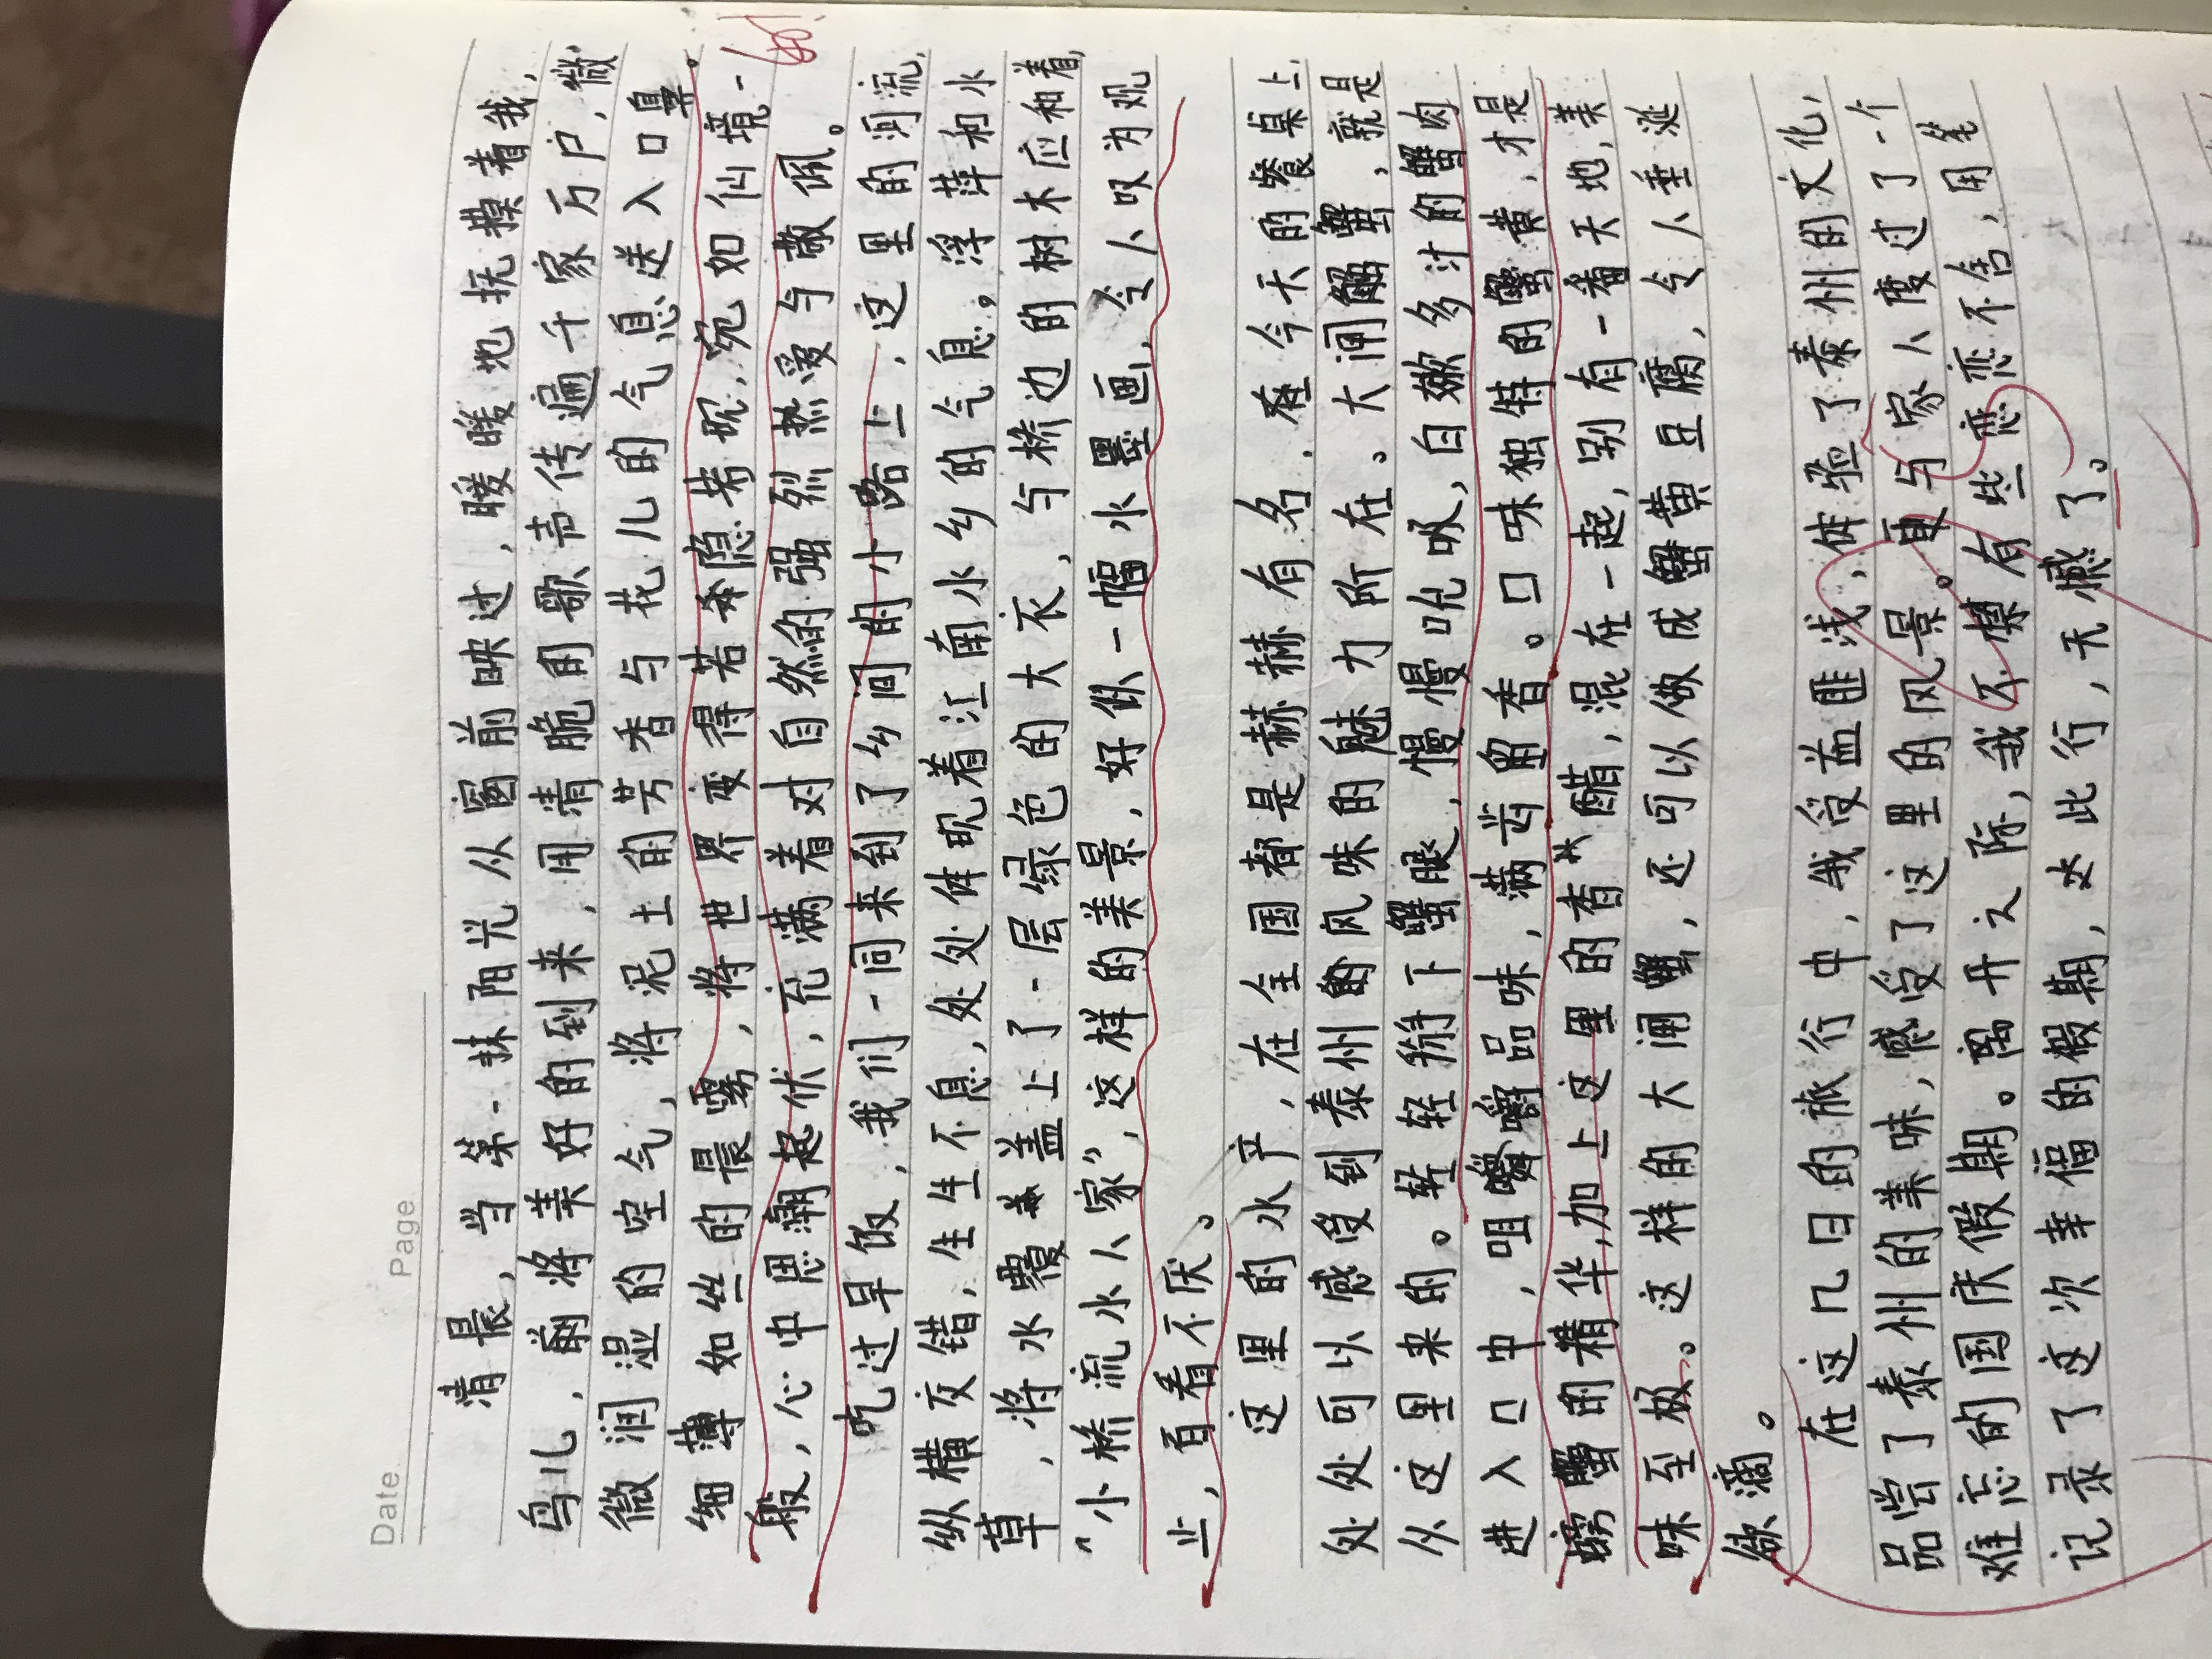 Date
Page
清晨，当第一抹阳光从窗前映过，暖暖地抚摸着我，
鸟儿，将美好的到来，用清脆的歌声传遍千家万户，微
微润湿的空气，将泥土的芳香与花儿的气息送入口鼻。
细薄如丝的晨雾，将世界变得若隐若现，宛如仙境一
般，心中思潮起伏，充满着对自然的强烈热爱与敬佩。
好！
吃过早饭，我们一同来到了乡间的小路上，这里的河流，
纵横交错，生生不息，处处体现着江南水乡的气息。浮萍和水
草，将水覆盖上了一层绿色的大衣，与桥边的树木应和着，
“小桥流水人家”，这样的美景，好似一幅水墨画，令人叹为观
止，百看不厌。
这里的水产，在全国都是赫赫有名，在今天的餐桌上，
处处可以感受到泰州的风味的魅力所在。大闸蟹，就是
从这里来的。轻轻掰下蟹腿，慢慢吮吸，白嫩多汁的蟹肉
进入口中，咀嚼品味，满齿留香。口味独特的蟹黄，才是
螃蟹的精华，加上这里的香醋，混在一起，别有一番天地，美
味至极。这样的大闸蟹，还可以做成蟹黄豆腐，令人垂涎
欲滴。
在这几日的旅行中，我受益匪浅，体验了泰州的文化，
品尝了泰州的美味，感受了这里的风景。更与家人度过了一个
难忘的国庆假期。离开之际，我不禁有些恋恋不舍，用笔
记录了这次幸福的假期，此行，无憾了。